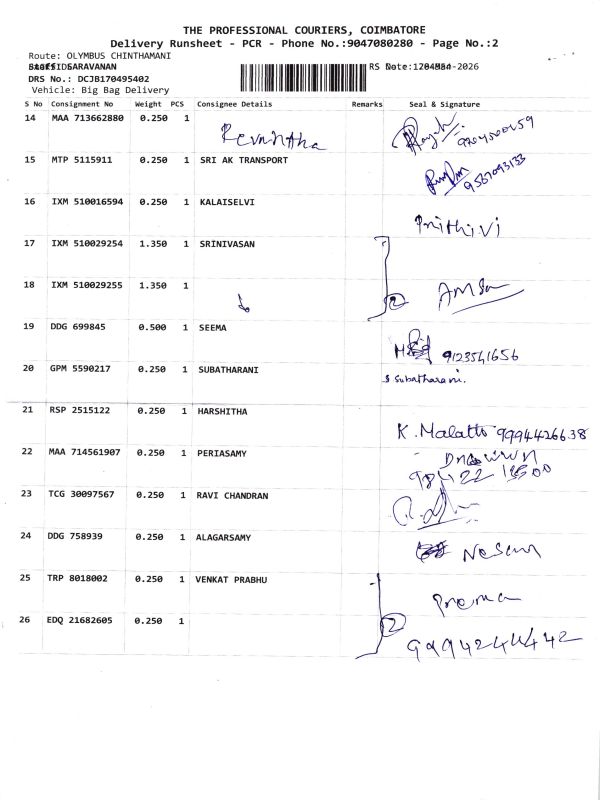 THE PROFESSIONAL COURIERS, COIMBATORE
Delivery Runsheet - PCR - Phone No.:9047080280 - Page No.:2
Route: OLYMBUS CHINTHAMANI
SARAVANAN
DRS No.: DCJB170495402
Vehicle: Big Bag Delivery
S No Consignment No Weight PCS Consignee Details Remarks Seal & Signature
14 MAA 713662880 0.250 1
15 MTP 5115911 0.250 1 SRI AK TRANSPORT
9587093133
16 IXM 510016594 0.250 1 KALAISELVI
Prithivi
17 IXM 510029254 1.350 1 SRINIVASAN
18 IXM 510029255 1.350 1
2
19 DDG 699845 0.500 1 SEEMA
9123541656
20 GPM 5590217 0.250 1 SUBATHARANI
S Subatharani.
21 RSP 2515122 0.250 1 HARSHITHA
K. Malatto 9994426638
22 MAA 714561907 0.250 1 PERIASAMY
23 TCG 30097567 0.250 1 RAVI CHANDRAN
24 DDG 758939 0.250 1 ALAGARSAMY
25 TRP 8018002 0.250 1 VENKAT PRABHU
Prema
26 EDQ 21682605 0.250 1
2
9994244442